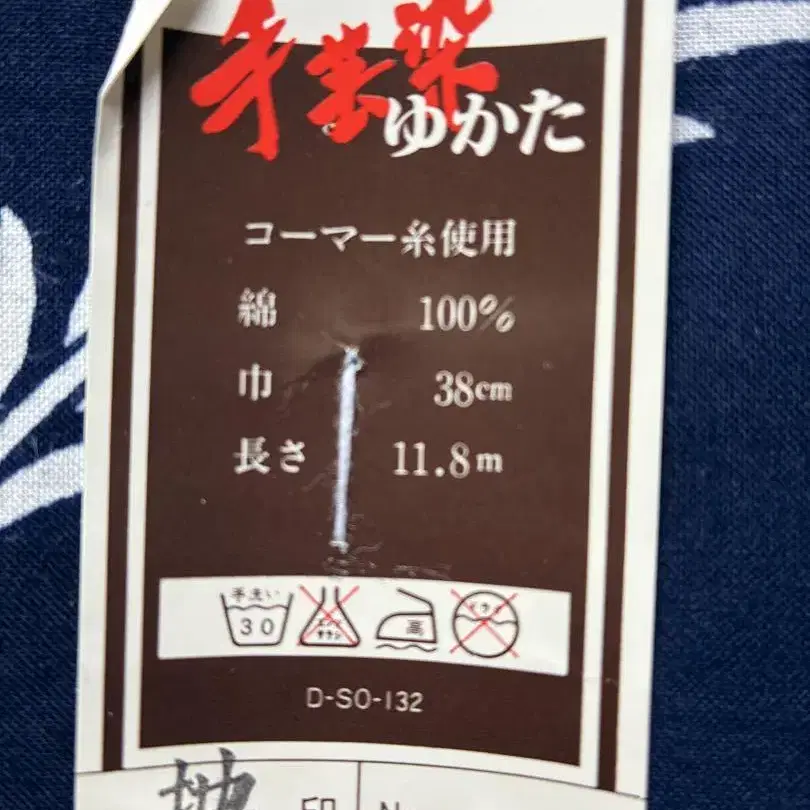 手芸染
ゆかた
コーマー糸使用
綿 100%
巾 38cm
長さ 11.8m
手洗い
30
エンソ
サラシ
高
ドライ
D-SO-132
地 印 N